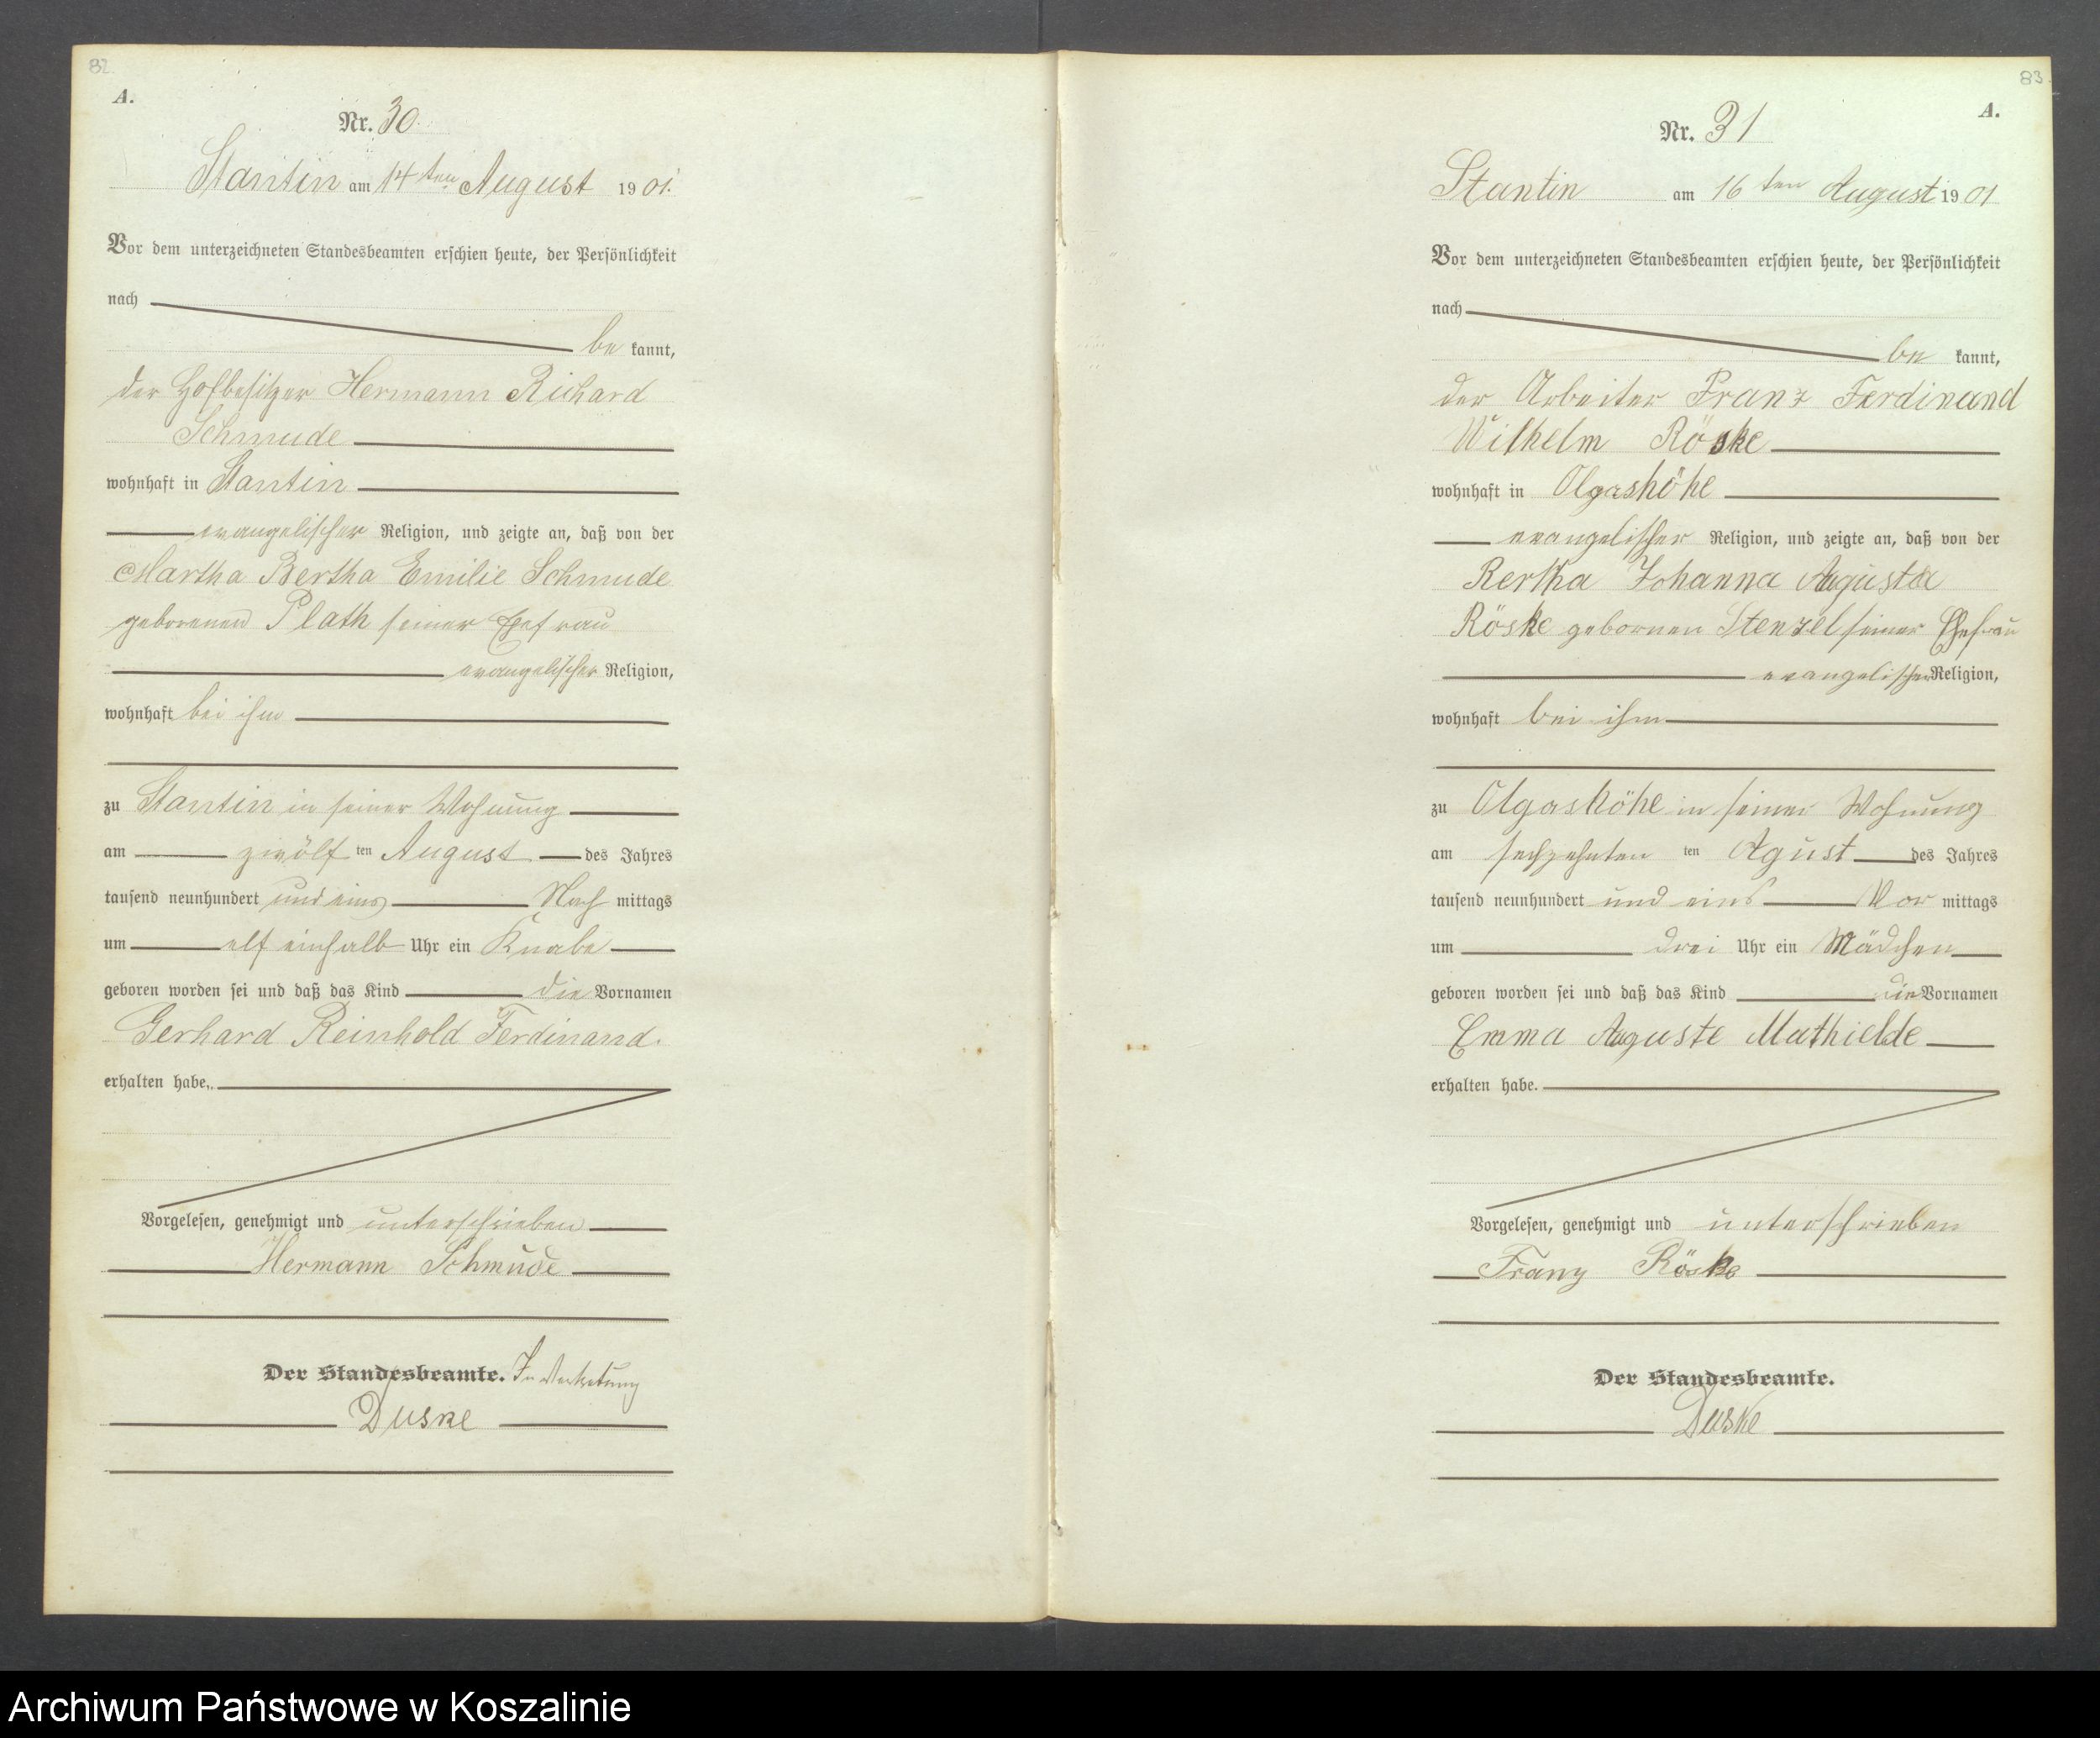 82.
A.
Nr. 30.
Stantin am 14ten August 1901.
Vor dem unterzeichneten Standesbeamten erschien heute, der Persönlichkeit
nach
be kannt,
der Hofbesitzer Hermann Richard
Schmude
wohnhaft in Stantin
evangelischer Religion, und zeigte an, daß von der
Martha Bertha Emilie Schmude
geborenen Plath seiner Ehefrau
evangelischer Religion,
wohnhaft bei ihm
zu Stantin in seiner Wohnung
am zwölf ten August des Jahres
tausend neunhundert und eins Nach mittags
um elf einhalb Uhr ein Knabe
geboren worden sei und daß das Kind die Vornamen
Gerhard Reinhold Ferdinand.
erhalten habe.
Vorgelesen, genehmigt und unterschrieben
Hermann Schmude
Der Standesbeamte. In Vertretung
Duske
83.
A.
Nr. 31
Stantin am 16 ten August 1901
Vor dem unterzeichneten Standesbeamten erschien heute, der Persönlichkeit
nach
be kannt,
der Arbeiter Franz Ferdinand
Wilhelm Röske
wohnhaft in Olgashöhe
evangelischer Religion, und zeigte an, daß von der
Bertha Johanna Augusta
Röske gebornen Stenzel seiner Ehefrau
evangelischer Religion,
wohnhaft bei ihm
zu Olgashöhe in seiner Wohnung
am sechzehnten ten Agust des Jahres
tausend neunhundert und eins Vor mittags
um drei Uhr ein Mädchen
geboren worden sei und daß das Kind die Vornamen
Emma Auguste Mathielde
erhalten habe.
Vorgelesen, genehmigt und unterschrieben
Franz Röske
Der Standesbeamte.
Duske
Archiwum Państwowe w Koszalinie